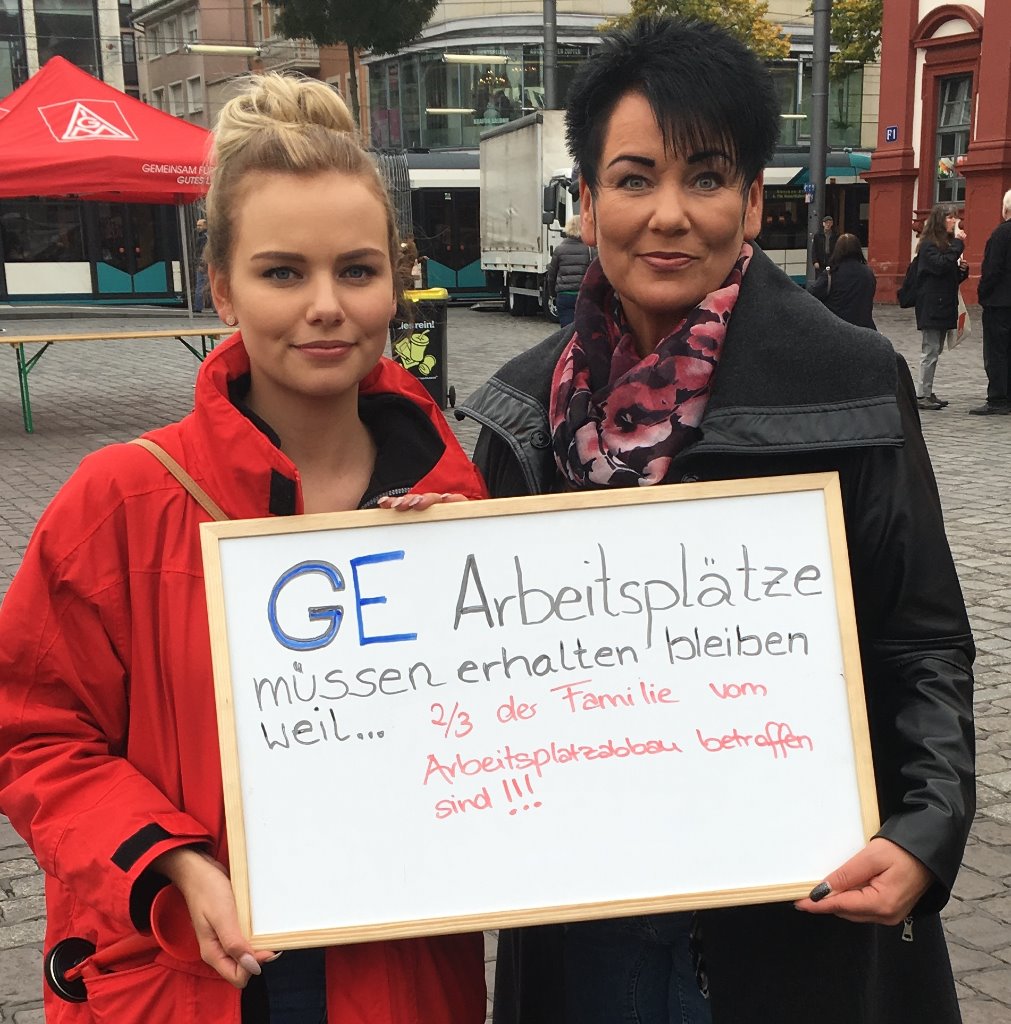 GEMEINSAM FÜR
GUTES L
F1
GE Arbeitsplätze
müssen erhalten bleiben
weil... 2/3 der Familie vom
Arbeitsplatzabbau betroffen
sind!!!